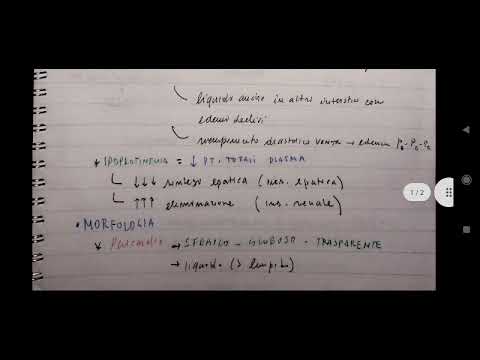 liquido anche in altri interstizi con
edemi declivi
riempimento diastolico → edema
IPOPROTINEMIA = ↓ PT. TOTALI PLASMA
↓↓↓ sintesi epatica (ins. epatica)
↑↑↑ eliminazione (ins. renale)
• MORFOLOGIA
→ STRATO - GLOBOSO - TRASPARENTE
→ liquido
1 / 2